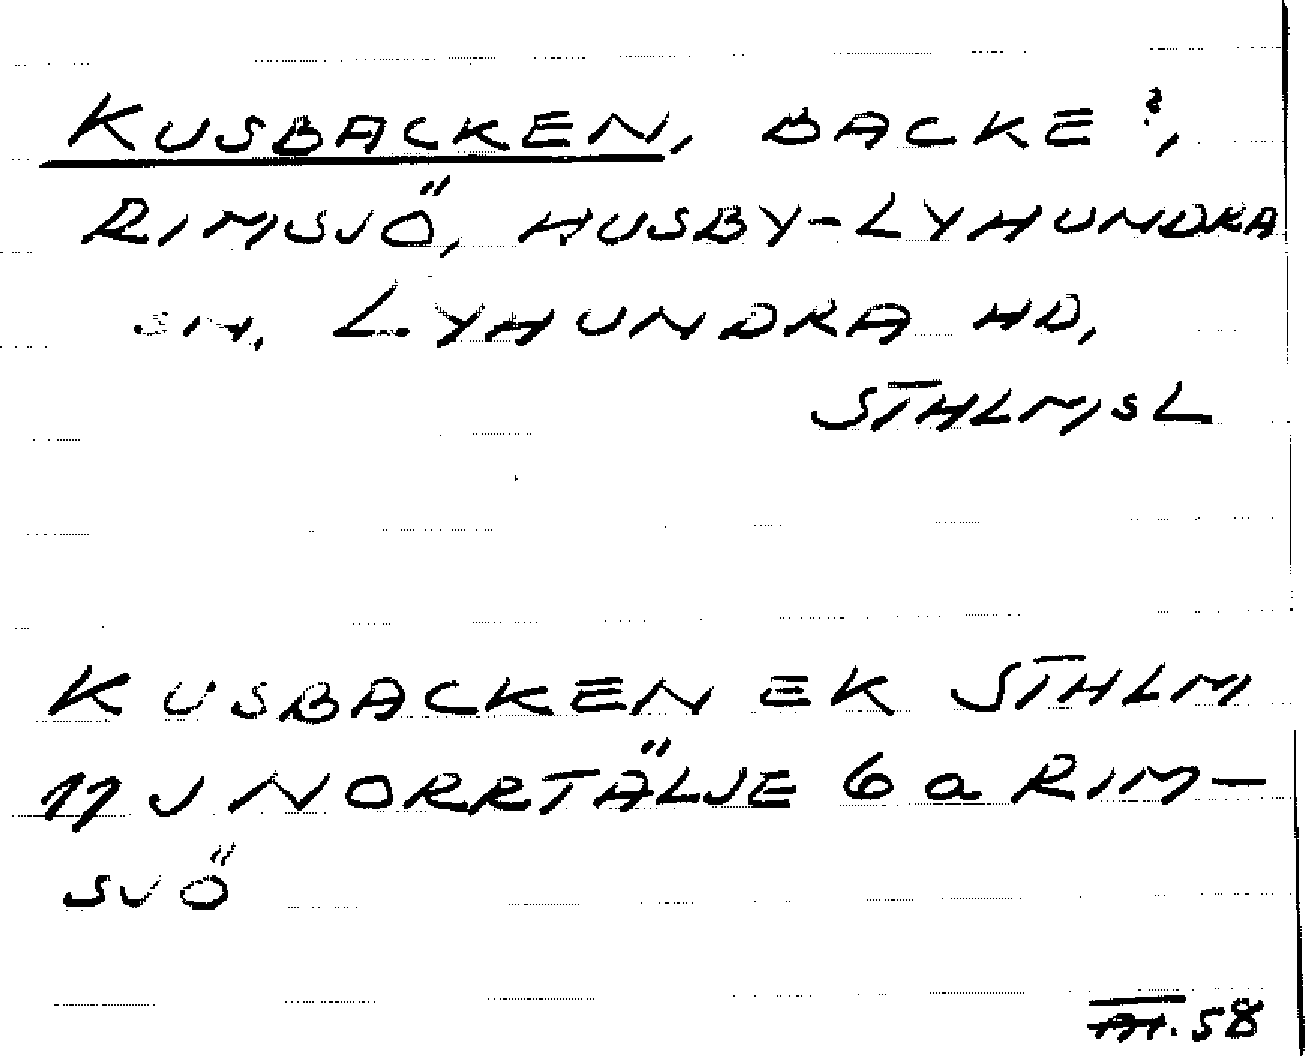 KUSBACKEN, BACKE?,
RIMSJÖ, HUSBY-LYHUNDRA
SN. LYHUNDRA HD,
STHLMSL
KUSBACKEN EK STHLM
11J NORRTÄLJE 6 a RIM-
SJÖ
58